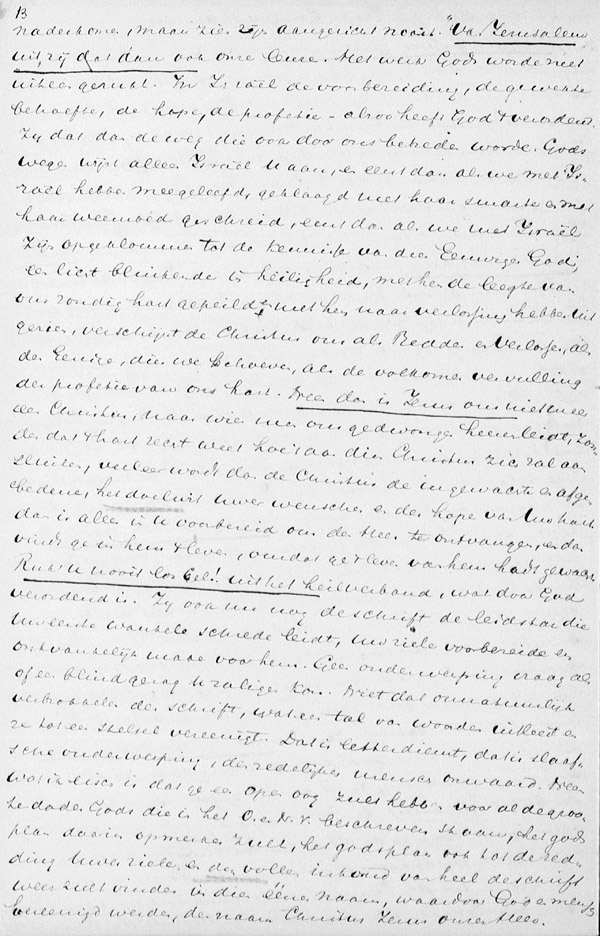 13
naderkomen, maar zien zijn aangezicht nooit. "Van Jerusalem
uit zij dat dan ook onze leuze. Het werk Gods worde niet
uiteengerukt. In Israël de voorbereiding, de gewekte
behoefte, de hope, de profetie - alzoo heeft God 't verordend.
Zij dat dan de weg die ook door ons betreden worde. Gods
wegen wijst allen Israël aan, en eerst dan als we met Is-
raël hebben meegeleefd, geklaagd met haar smarten en met
haar weemoed geschreid, eerst dan als we met Israël
zijn opgeklommen tot de kennisse van dien Eeuwigen God,
een licht blinkende in heiligheid, met hen de leegte van
ons zondig hart gepeild en met hen naar verlossing hebben uit
gezien, verschijnt de Christus ons als Redder en Verlosser, als
de Eenige, dien we behoeven, als de volkomen vervulling
der profetie van ons hart. Neen dan is Jezus ons niet meer
een Christus, naar wien men ons gedwongen heenleidt, zon-
der dat 't hart recht weet hoe 't aan dien Christus zich zal aan
sluiten, veeleer wordt dan de Christus de ingewachte en afge
bedene, het doelwit uwer wenschen en der hope van Uw hart.
dan is alles in u voorbereid om den Heer te ontvangen, en dan
vindt ge in hem 't leven, omdat ge 't leven van hem hadt gewacht.
Ruk U nooit los Gel! uit het heilverband, wat door God
verordend is. Zij ook nu nog de schrift de leidstar die
Uw eerste wankele schrede leidt, Uw ziele voorbereide en
ontvankelijk make voor hem. Geen onderwerping vraag als
of een blind gezag U zaligen kon. Niet dat onnatuurlijk
verbrokkelen der schrift, wat een tal van woorden uitleest en
ze tot een stelsel vereenigt. Dat is letterdienst, dat is slaaf-
sche onderwerping, den redelijken mensch onwaard. Neen
wat ik eisch is dat ge een open oog zult hebben voor al de groo
te daden Gods die in het O. en N. V. beschreven staan, het gods
plan daarin opmerken zult, het godsplan ook tot de red
ding Uwer ziele en den vollen inhoud van heel de schrift
weer zult vinden in dien éénen naam, waardoor God en mensch
vereenigd werden, den naam Christus Jezus onzen Heer.